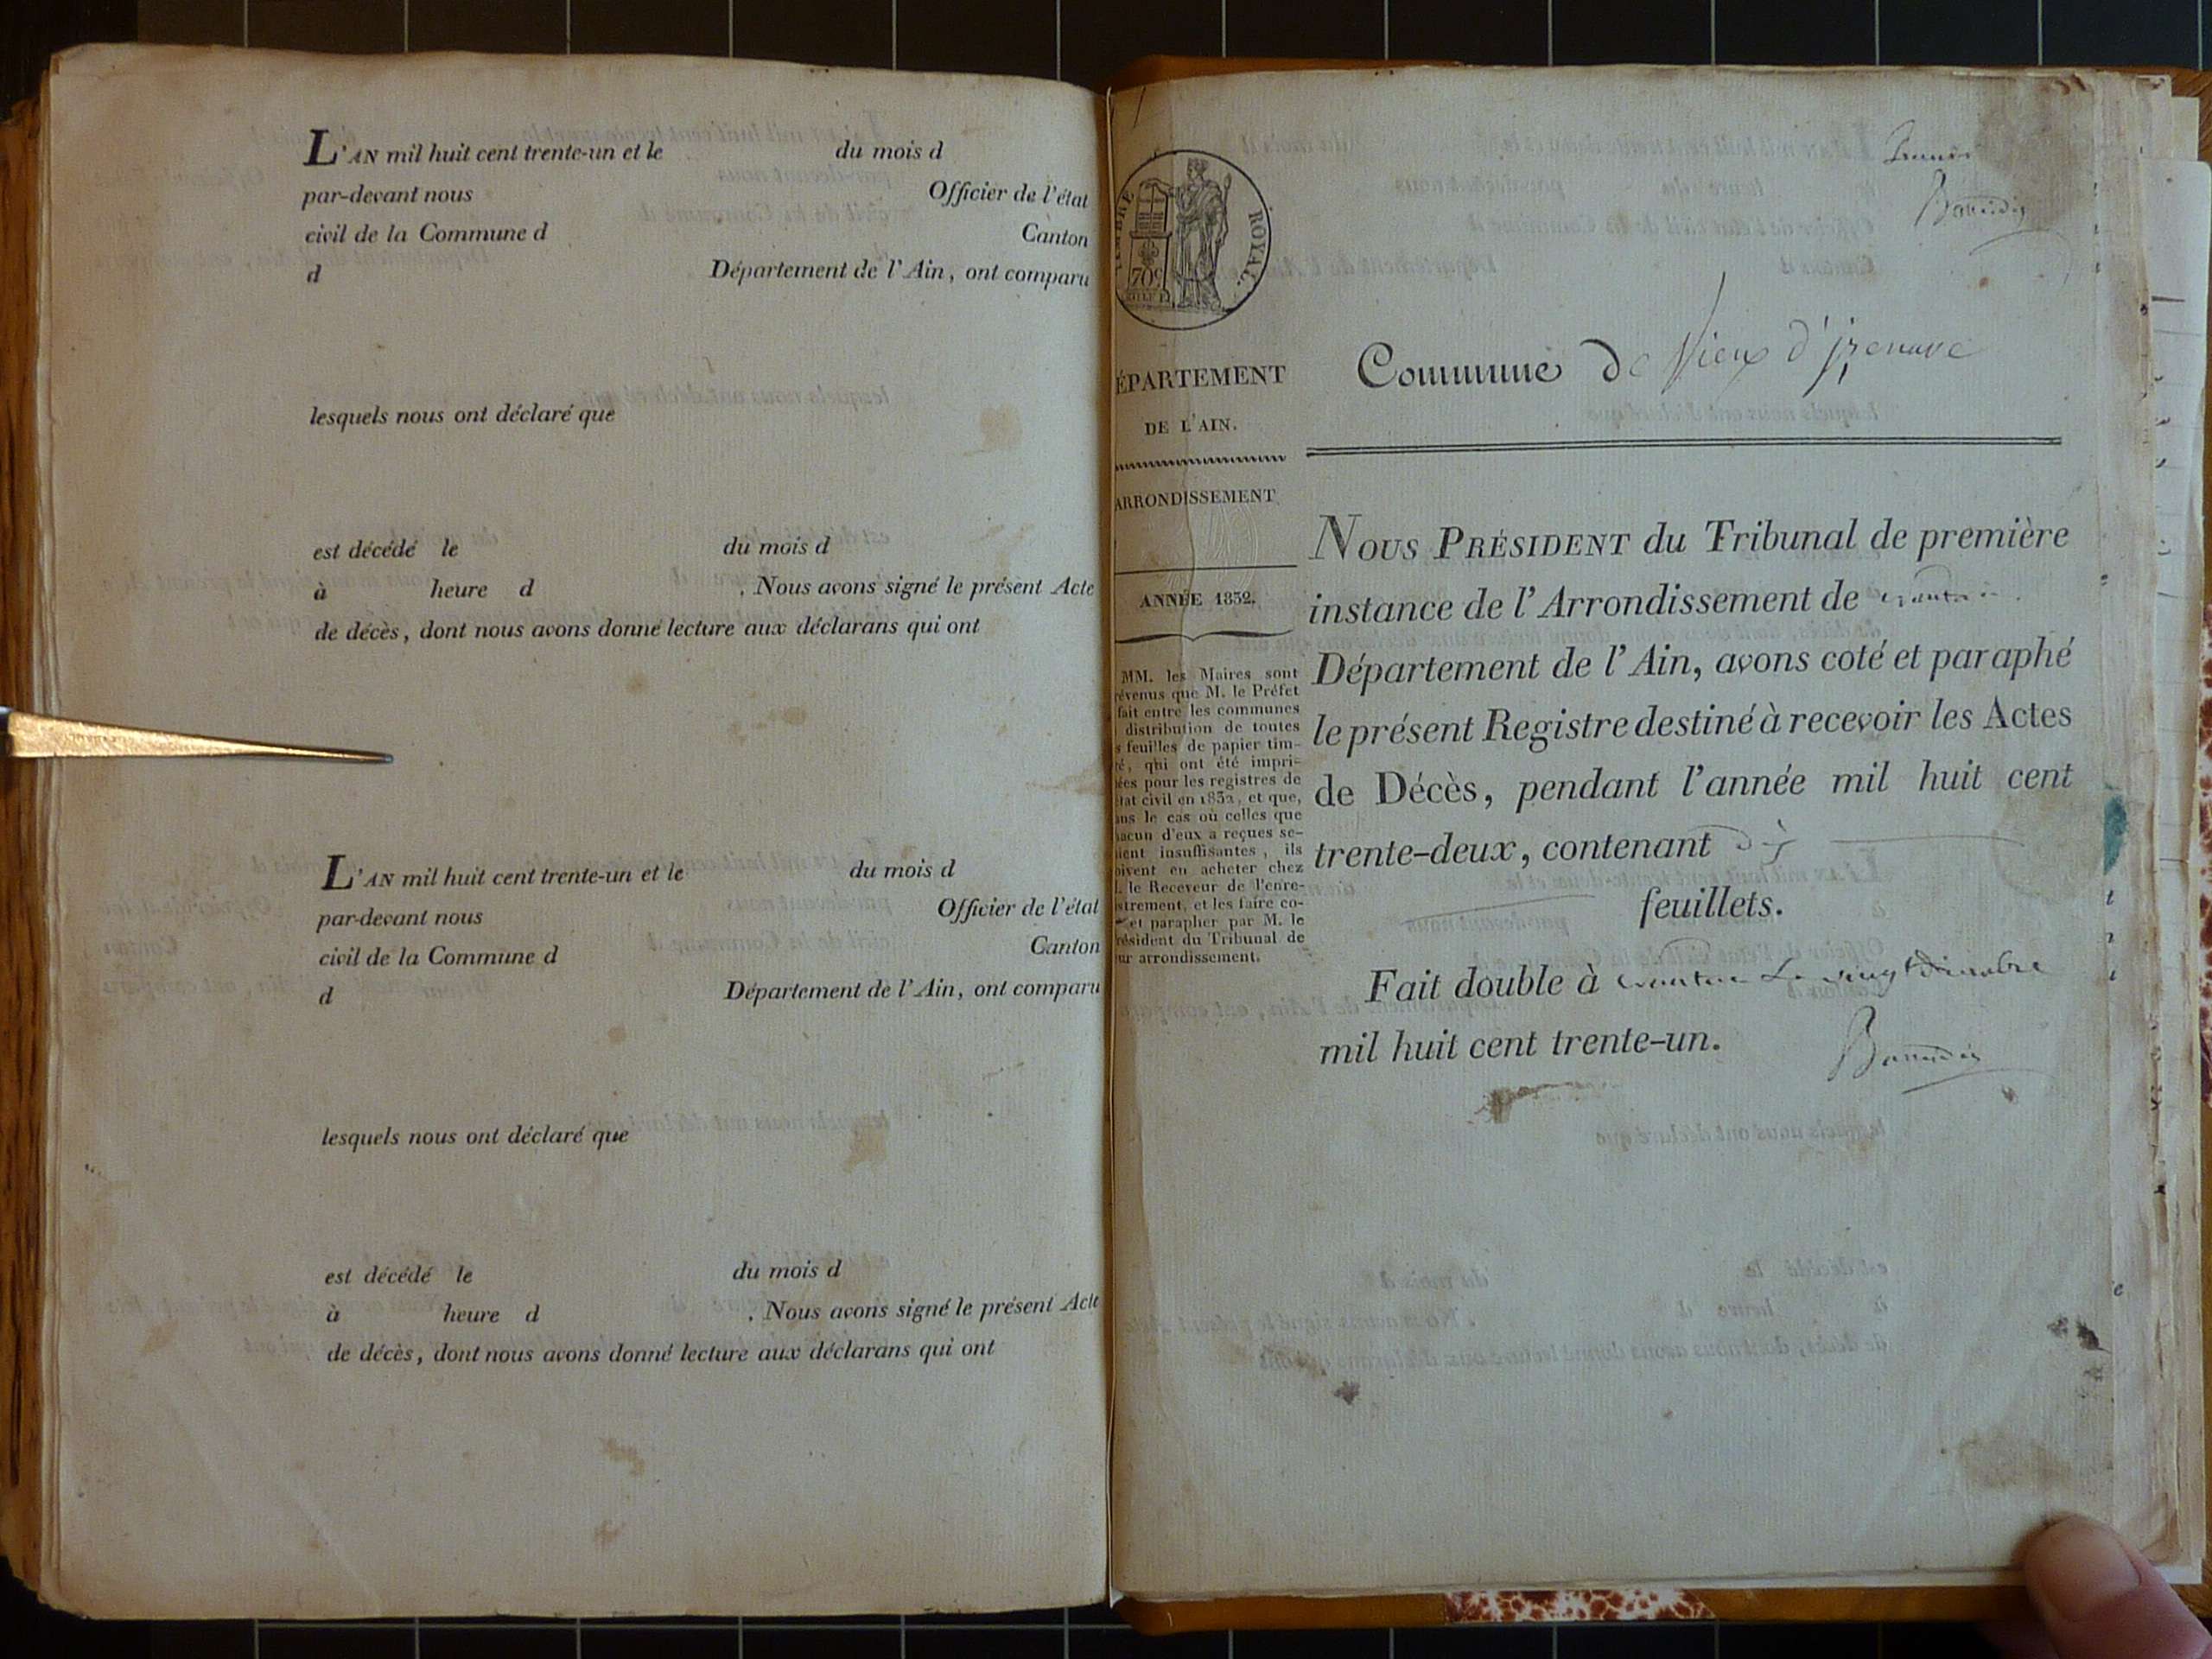 L'AN mil huit cent trente-un et le du mois d
par-devant nous Officier de l'état
civil de la Commune d Canton
d Département de l'Ain, ont comparu
lesquels nous ont déclaré que
est décédé le du mois d
à heure d . Nous avons signé le présent Acte
de décès, dont nous avons donné lecture aux déclarans qui ont
L'AN mil huit cent trente-un et le du mois d
par-devant nous Officier de l'état
civil de la Commune d Canton
d Département de l'Ain, ont comparu
lesquels nous ont déclaré que
est décédé le du mois d
à heure d . Nous avons signé le présent Acte
de décès, dont nous avons donné lecture aux déclarans qui ont
ROYAL.
70c
ÉPARTEMENT
DE L'AIN.
ARRONDISSEMENT
ANNÉE 1832.
MM. les Maires sont
révenus que M. le Préfet
fait entre les communes
distribution de toutes
s feuilles de papier tim-
é, qui ont été impri-
ées pour les registres de
tat civil en 1832, et que,
ns le cas où celles que
acun d'eux a reçues se-
ient insuffisantes, ils
oivent en acheter chez
. le Receveur de l'enre-
strement, et les faire co-
et parapher par M. le
résident du Tribunal de
ur arrondissement.
Commune de Vieux d'izenave
NOUS PRÉSIDENT du Tribunal de première
instance de l'Arrondissement de nantua
Département de l'Ain, avons coté et paraphé
le présent Registre destiné à recevoir les Actes
de Décès, pendant l'année mil huit cent
trente-deux, contenant
feuillets.
Fait double à nantua Le vingt Décembre
mil huit cent trente-un.